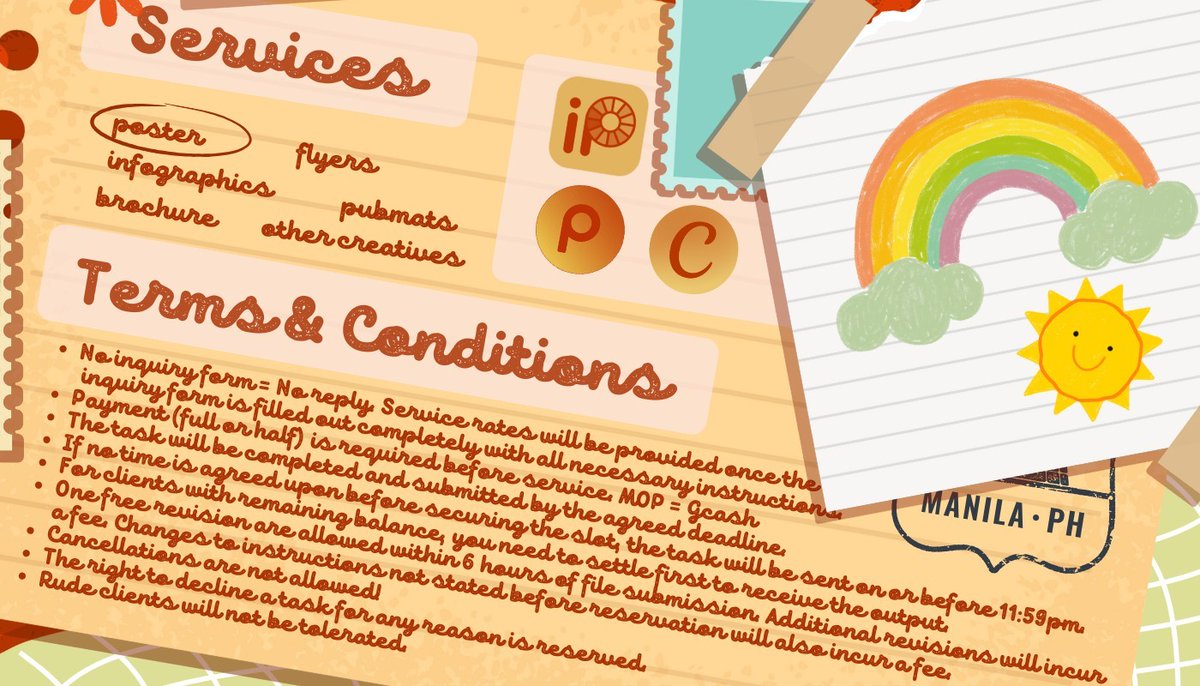 Services
poster
flyers
infographics
pubmats
brochure
other creatives
iP
P
C
Terms & Conditions
• No inquiry form = No reply. Service rates will be provided once the
inquiry form is filled out completely with all necessary instructions.
• Payment (full or half) is required before service. MOP = Gcash
• The task will be completed and submitted by the agreed deadline.
• If no time is agreed upon before securing the slot, the task will be sent on or before 11:59pm.
• For clients with remaining balance, you need to settle first to receive the output.
• One free revision are allowed within 6 hours of file submission. Additional revisions will incur
a fee. Changes to instructions not stated before reservation will also incur a fee.
• Cancellations are not allowed!
• The right to decline a task for any reason is reserved.
• Rude clients will not be tolerated.
MANILA · PH